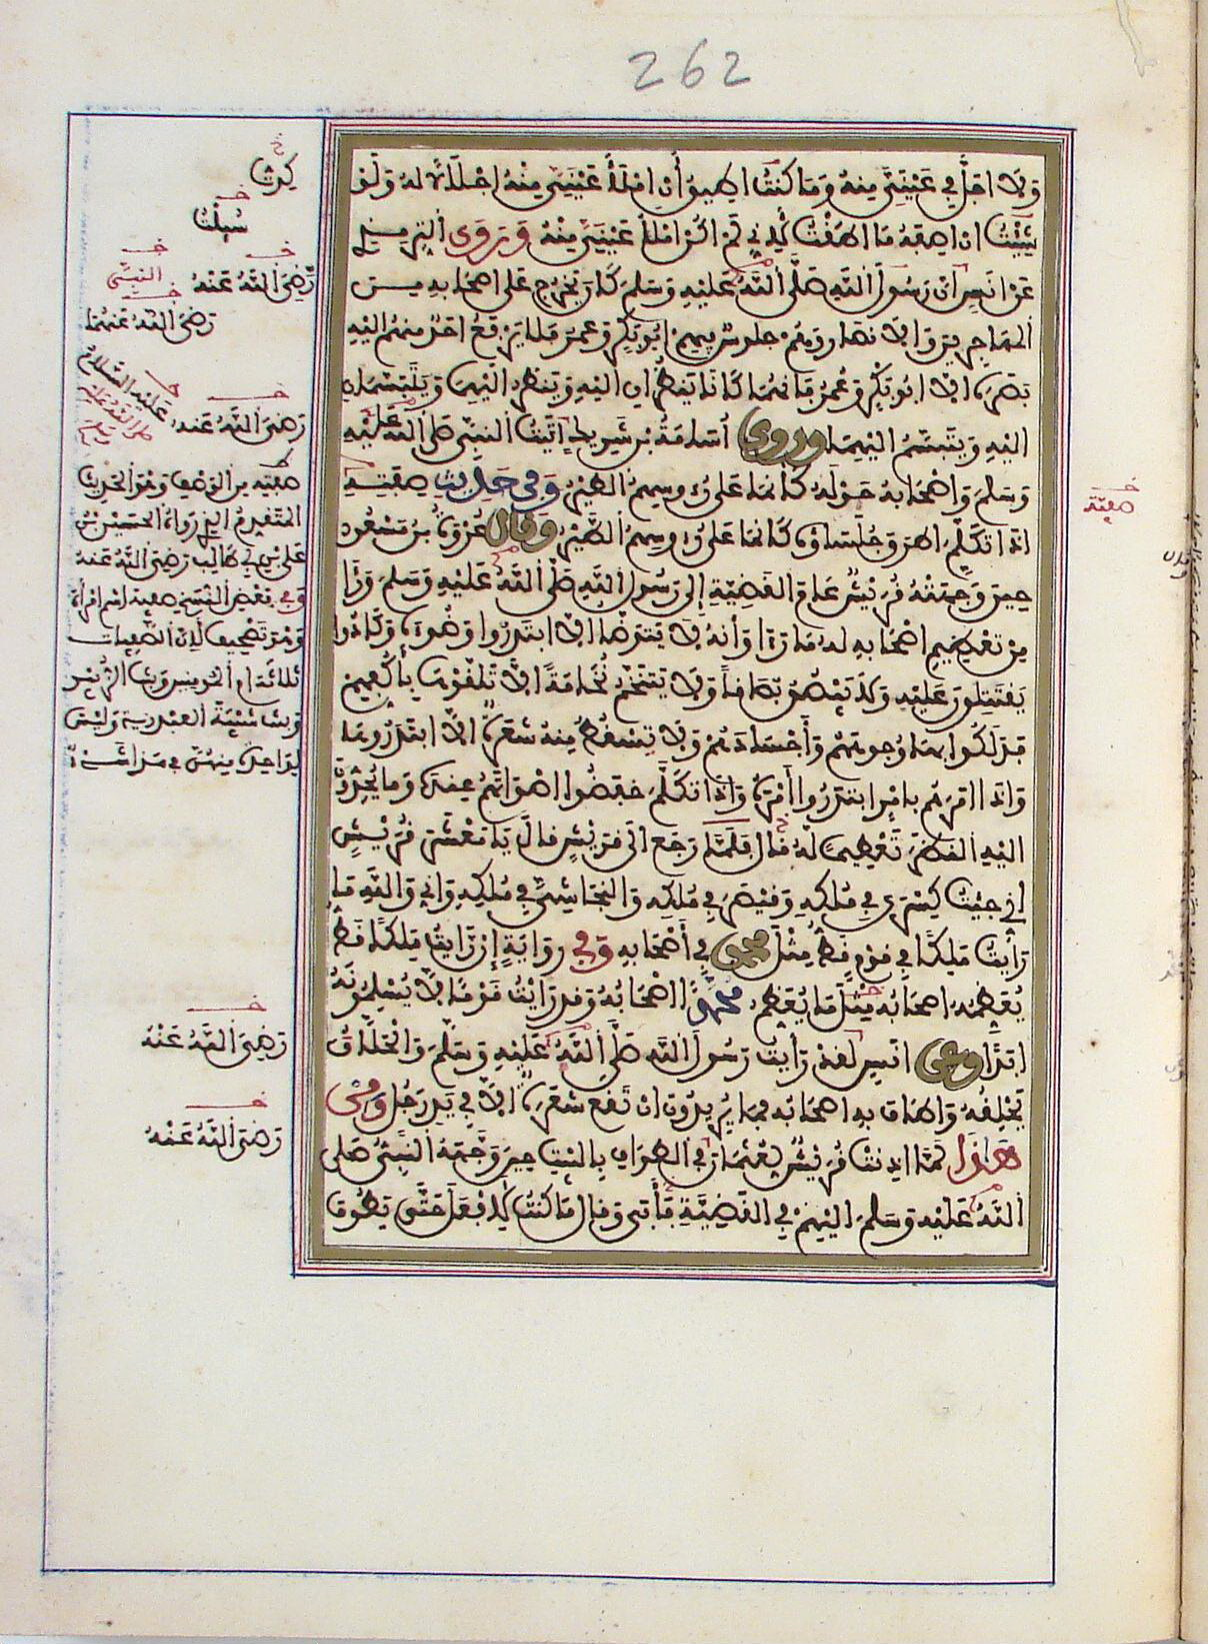 262
وَلَا اجَلَّ فِي عَيْنَيَّ مِنْهُ وَمَا كُنْتُ اطِيقُ أَنْ امْلَأَ عَيْنَيَّ مِنْهُ اجْلَالًا لَهُ وَلَوْ
شِيْتُ ان اصِفَهُ مَا اطَقْتُ لِأَنِّي لَمْ اكُنْ امْلَأُ عَيْنَيَّ مِنْهُ وَرَوَى التِّرْمِذِي
عَنْ انَسٍ أنّ رَسُولَ اللَّهِ صَلَّى اللَّهُ عَلَيْهِ وَسَلَّمَ كَانَ يَخْرُجُ عَلَى اصْحَابِهِ مِنَ
الْمُهَاجِرِينَ وَالَانْصَارِ وَهُمْ جُلُوسٌ فِيهِمْ ابُو بَكْرٍ وَعُمَرُ فَلَا يَرْفَعُ احَدٌ مِنْهُمُ الَيْهِ
بَصَرَهُ الَّا ابُو بَكْرٍ وَعُمَرُ فَانَّهُمَا كَانَا يَنْظُرَانِ الَيْهِ وَيَنْظُرُ الَيْهِمَا وَيَتَبَسَّمَانِ
الَيْهِ وَيَتَبَسَّمُ الَيْهِمَا وَرَوَى أُسَامَةُ بْنُ شَرِيكٍ اتَيْتُ النَّبِيَّ صَلَّى اللَّهُ عَلَيْهِ
وَسَلَّمَ وَاصْحَابُهُ حَوْلَهُ كَأَنَّمَا عَلَى رُءُوسِهِمُ الطَّيْرُ وَفِي حَدِيثِ صِفَتِهِ
اذَا تَكَلَّمَ اطْرَقَ جُلَسَاؤُهُ كَأَنَّمَا عَلَى رُءُوسِهِمُ الطَّيْرُ وَقَالَ عُرْوَةُ بْنُ مَسْعُودٍ
حِينَ وَجَّهَتْهُ قُرَيْشٌ عَامَ الْقَضِيَّةِ إِلَى رَسُولِ اللَّهِ صَلَّى اللَّهُ عَلَيْهِ وَسَلَّمَ وَرَأَى
مِنْ تَعْظِيمِ اصْحَابِهِ لَهُ مَا رَأَى وَأَنَّهُ لَا يَتَوَضَّأُ الَّا ابْتَدَرُوا وَضُوءَهُ وَكَادُوا
يَقْتَتِلُونَ عَلَيْهِ وَلَا يَبْصُقُ بُصَاقًا وَلَا يَتَنَخَّمُ نُخَامَةً الَّا تَلَقَّوْهَا بِأَكُفِّهِمْ
فَدَلَكُوا بِهَا وُجُوهَهُمْ وَأَجْسَادَهُمْ وَلَا تَسْقُطُ مِنْهُ شَعَرَةٌ الَّا ابْتَدَرُوهَا
وَاذَا امَرَهُمْ بِامْرٍ ابْتَدَرُوا أَمْرَهُ وَاذَا تَكَلَّمَ خَفَضُوا اصْوَاتَهُمْ عِنْدَهُ وَمَا يُحِدُّونَ
الَيْهِ النَّظَرَ تَعْظِيمًا لَهُ قَالَ فَلَمَّا رَجَعَ الَى قُرَيْشٍ قَالَ يَا مَعْشَرَ قُرَيْشٍ
إِنِّي جِيْتُ كِسْرَى فِي مُلْكِهِ وَقَيْصَرَ فِي مُلْكِهِ وَالنَّجَاشِيَّ فِي مُلْكِهِ وَانِّي وَاللَّهِ مَا
رَأَيْتُ مَلِكًا فِي قَوْمٍ قَطُّ مِثْلَ مُحَمَّدٍ فِي أَصْحَابِهِ وَفِي رِوَايَةٍ إِنْ رَأَيْتُ مَلِكًا قَطُّ
يُعَظِّمُهُ اصْحَابُهُ مِثْلَ مَا يُعَظِّمُ مُحَمَّدًا اصْحَابُهُ وَقَدْ رَأَيْتُ قَوْمًا لَا يُسْلِمُونَهُ
ابَدًا وَعَنْ انَسٍ لَقَدْ رَأَيْتُ رَسُولَ اللَّهِ صَلَّى اللَّهُ عَلَيْهِ وَسَلَّمَ وَالْحَلَّاقُ
يَحْلِقُهُ وَاطَافَ بِهِ اصْحَابُهُ فَمَا يُرِيدُونَ انْ تَقَعَ شَعَرَةٌ الَّا فِي يَدِ رَجُلٍ وَمِنْ
هَذَا لَمَّا اذِنَتْ قُرَيْشٌ لِعُثْمَانَ فِي الطَّوَافِ بِالْبَيْتِ حِينَ وَجَّهَهُ النَّبِيُّ صَلَّى
اللَّهُ عَلَيْهِ وَسَلَّمَ الَيْهِمْ فِي الْقَضِيَّةِ فَأَبَى وَقَالَ مَا كُنْتُ لِأَفْعَلَ حَتَّى يَطُوفَ
سُيِلْتُ
رَضِيَ اللَّهُ عَنْهُ النَّبِيَّ
رَضِيَ اللَّهُ عَنْهُمَا
عَلَيْهِ السَّلَامُ
رَضِيَ اللَّهُ عَنْهُ
صفته من الوصف وهو الحديث
المتقدم الذي رواه الحسين بن
علي بن أبي طالب رضي الله عنه
وفي بعض النسخ صفية اسم امرأة
وهو تصحيف لأن الصفيات
ثلاثة
وبنت شيبة العبدرية وليس
لواحدة منهن في هذا شيء
صفيّة
رَضِيَ اللَّهُ عَنْهُ
رَضِيَ اللَّهُ عَنْهُ